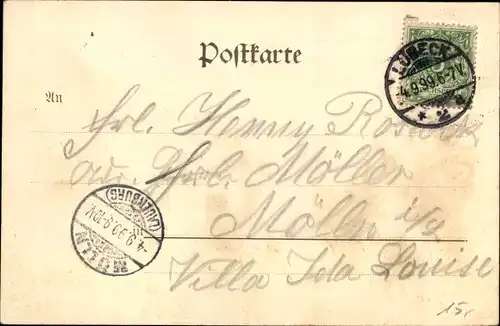 Postkarte
LÜBECK
4.9.99.6-7V.
* 2 a
An
Frl. Henny
adr. Frl. Möller
Mölln i/L
Villa Ida Louise
(LAUENBURG)
4-9.99.9-10V.
MÖLLN
15,-